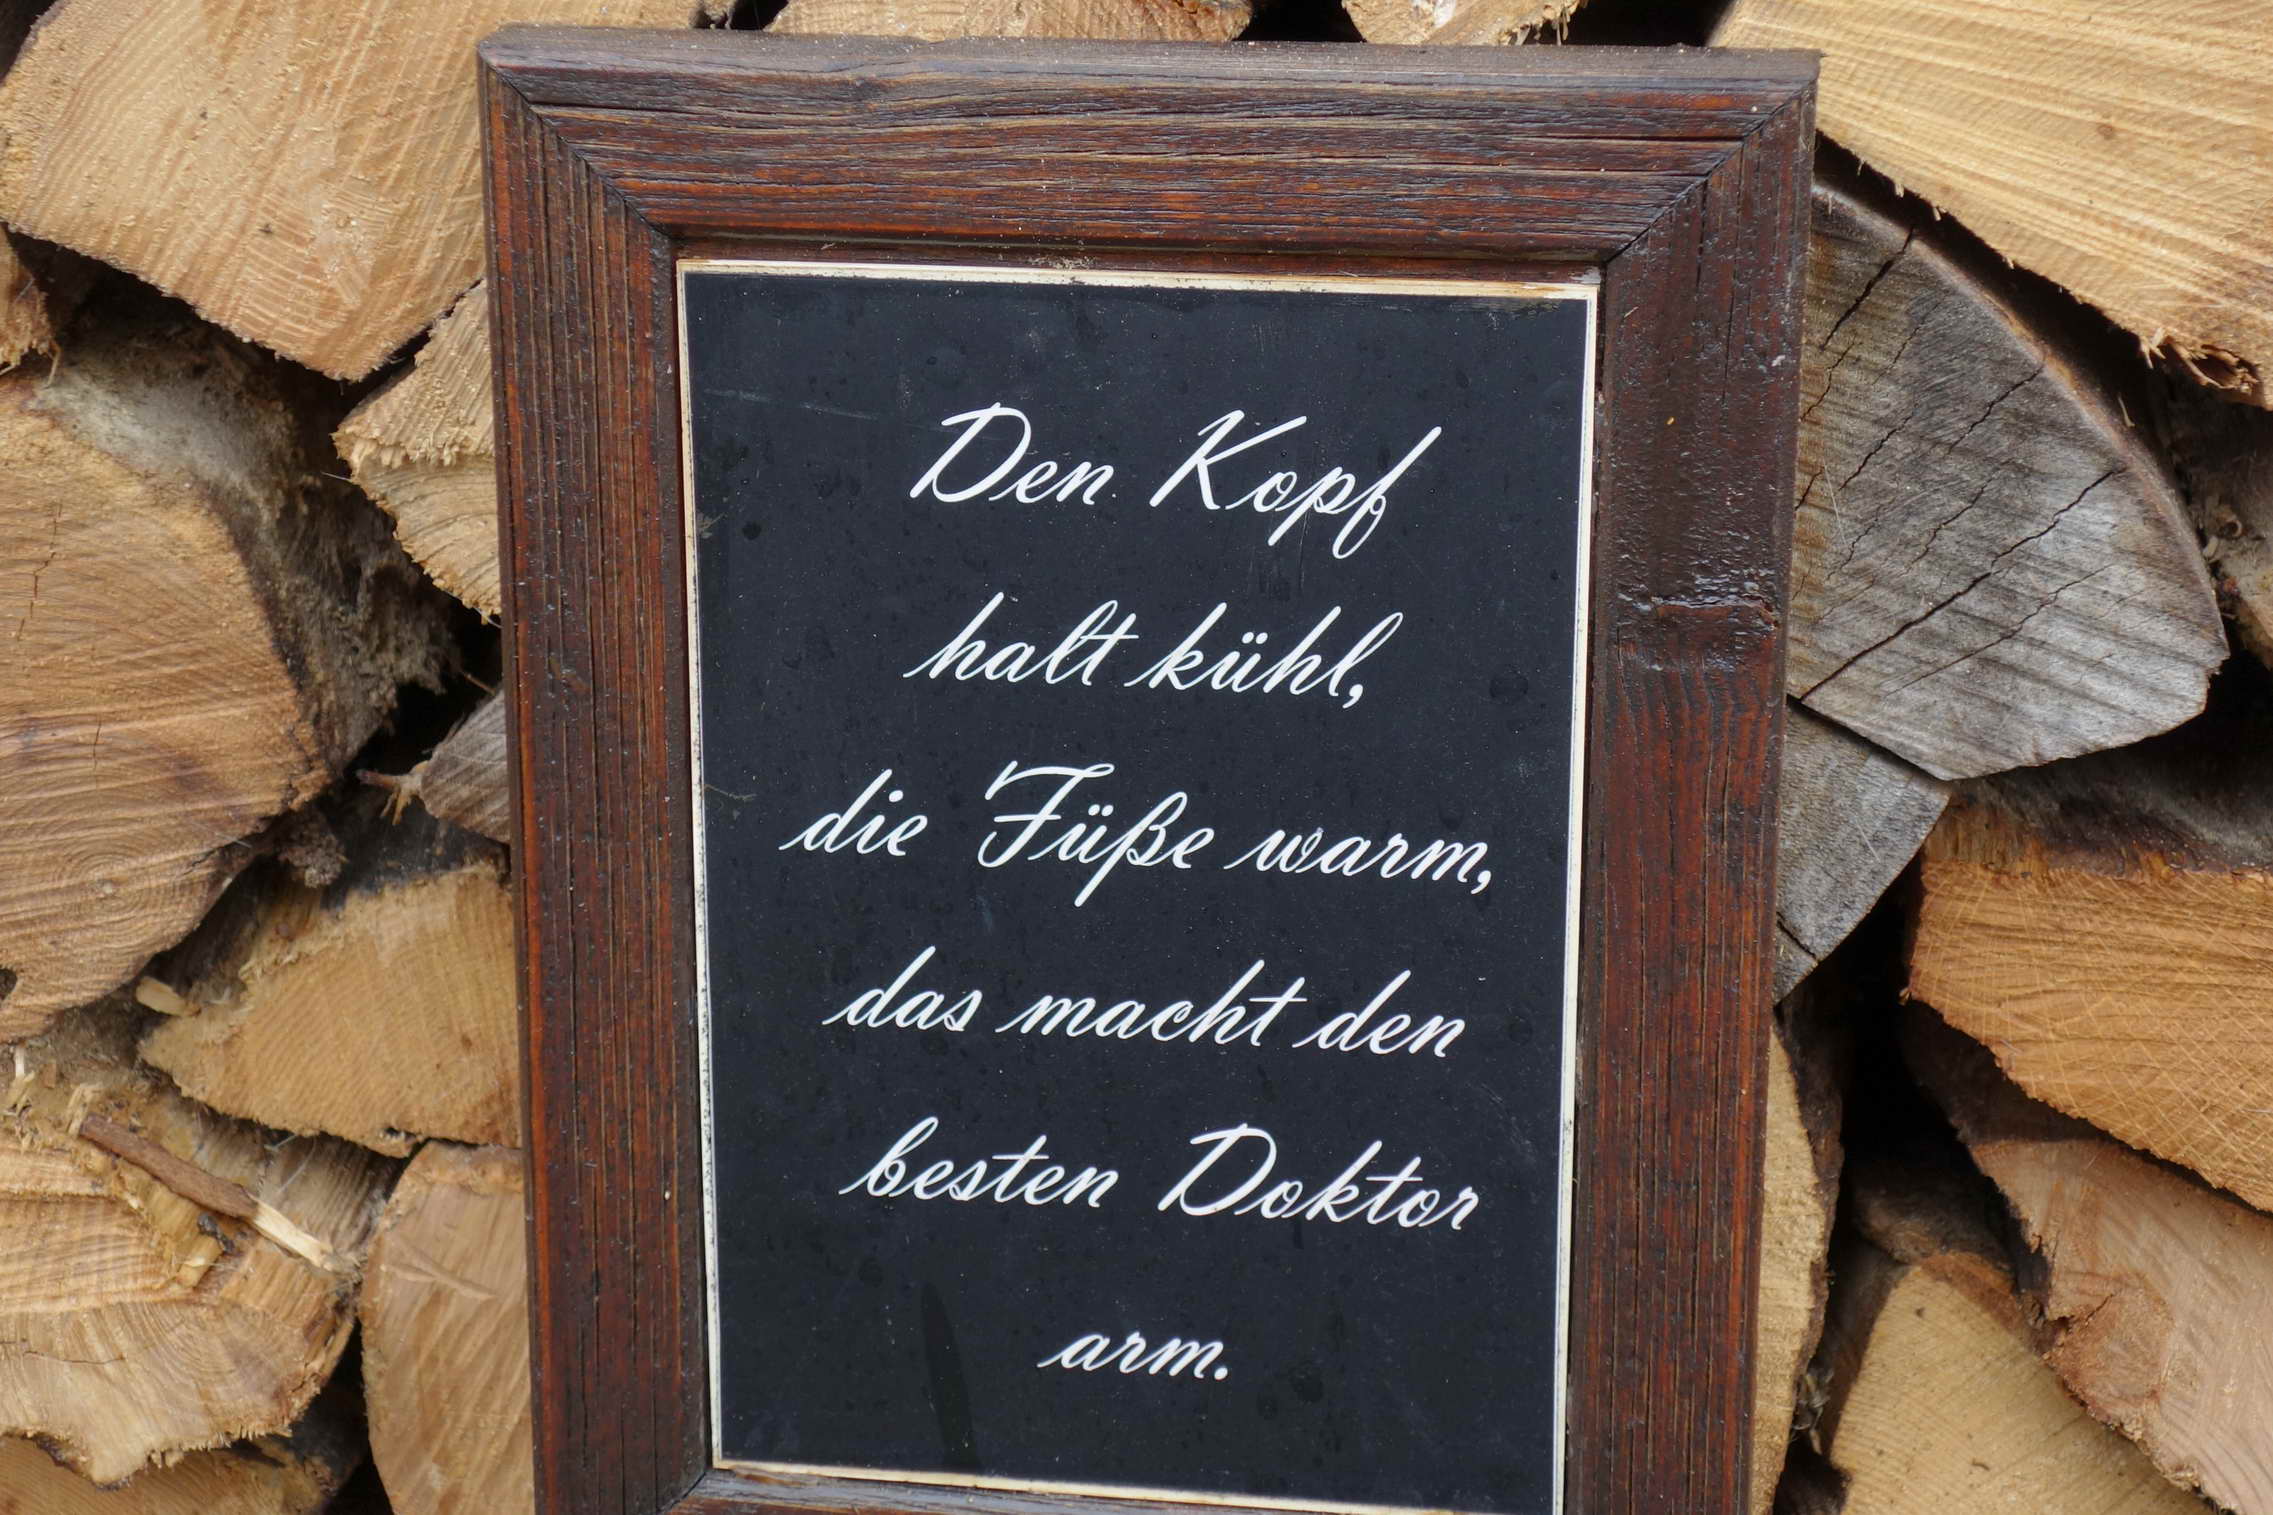 Den Kopf
halt kühl,
die Füße warm,
das macht den
besten Doktor
arm.